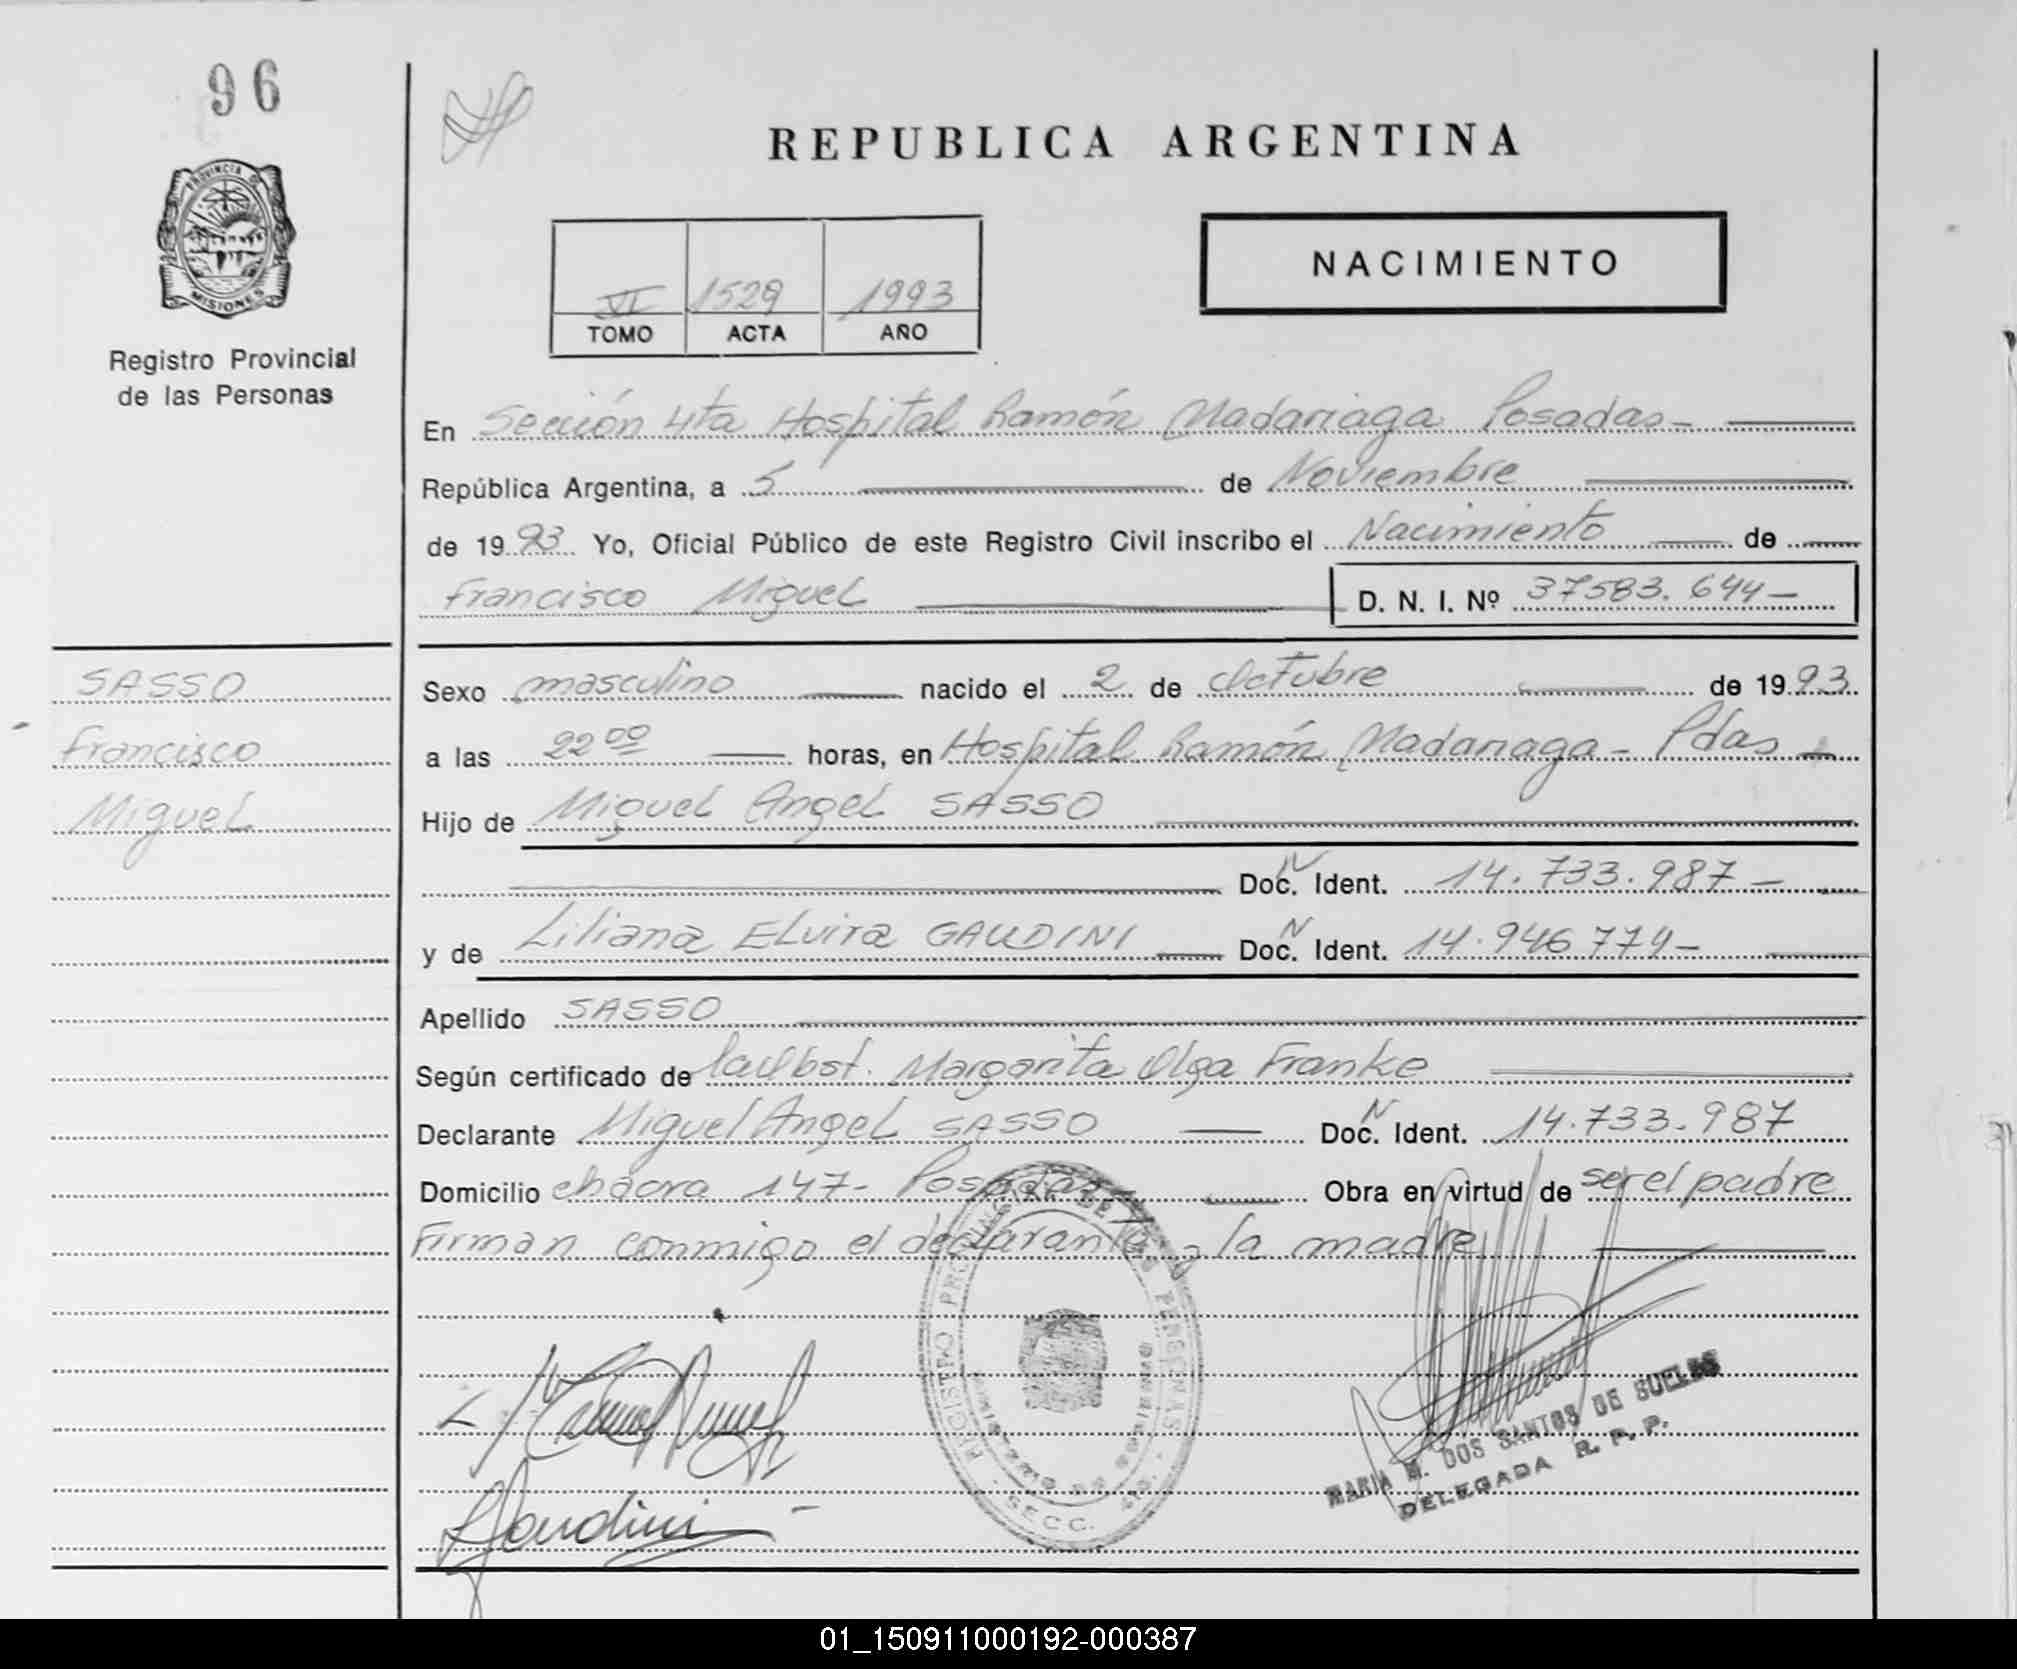 96
REPUBLICA ARGENTINA
PROVINCIA DE
MISIONES
Registro Provincial
de las Personas
VI 1529 1993
TOMO ACTA AÑO
NACIMIENTO
En Sección 4ta Hospital Ramón Madariaga Posadas -
República Argentina, a 5 de Noviembre
de 1993 Yo, Oficial Público de este Registro Civil inscribo el Nacimiento de
Francisco Miguel D. N. I. Nº 37583.644 -
SASSO
Francisco
Miguel
Sexo masculino nacido el 2 de Octubre de 1993
a las 22 00 horas, en Hospital Ramón Madariaga - Pdas -
Hijo de Miguel Angel SASSO
N
Doc. Ident. 14.733.987 -
N
y de Liliana Elvira GAUDINI Doc. Ident. 14.946 774 -
Apellido SASSO
Según certificado de Margarita Olga Franke
N
Declarante Miguel Angel SASSO Doc. Ident. 14.733.987
Domicilio chacra 147- Posadas Obra en virtud de ser el padre
Firman conmigo el declarante y la madre
REGISTRO PROVINCIAL DE LAS PERSONAS
SECC. 4ta.
MARIA M. DOS SANTOS DE SUELAS
DELEGADA R. P. P.
Gaudini
01_150911000192-000387